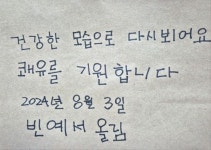 건강한 모습으로 다시보어요
쾌유를 기원합니다
2024년 8월 3일
빈예서 올림